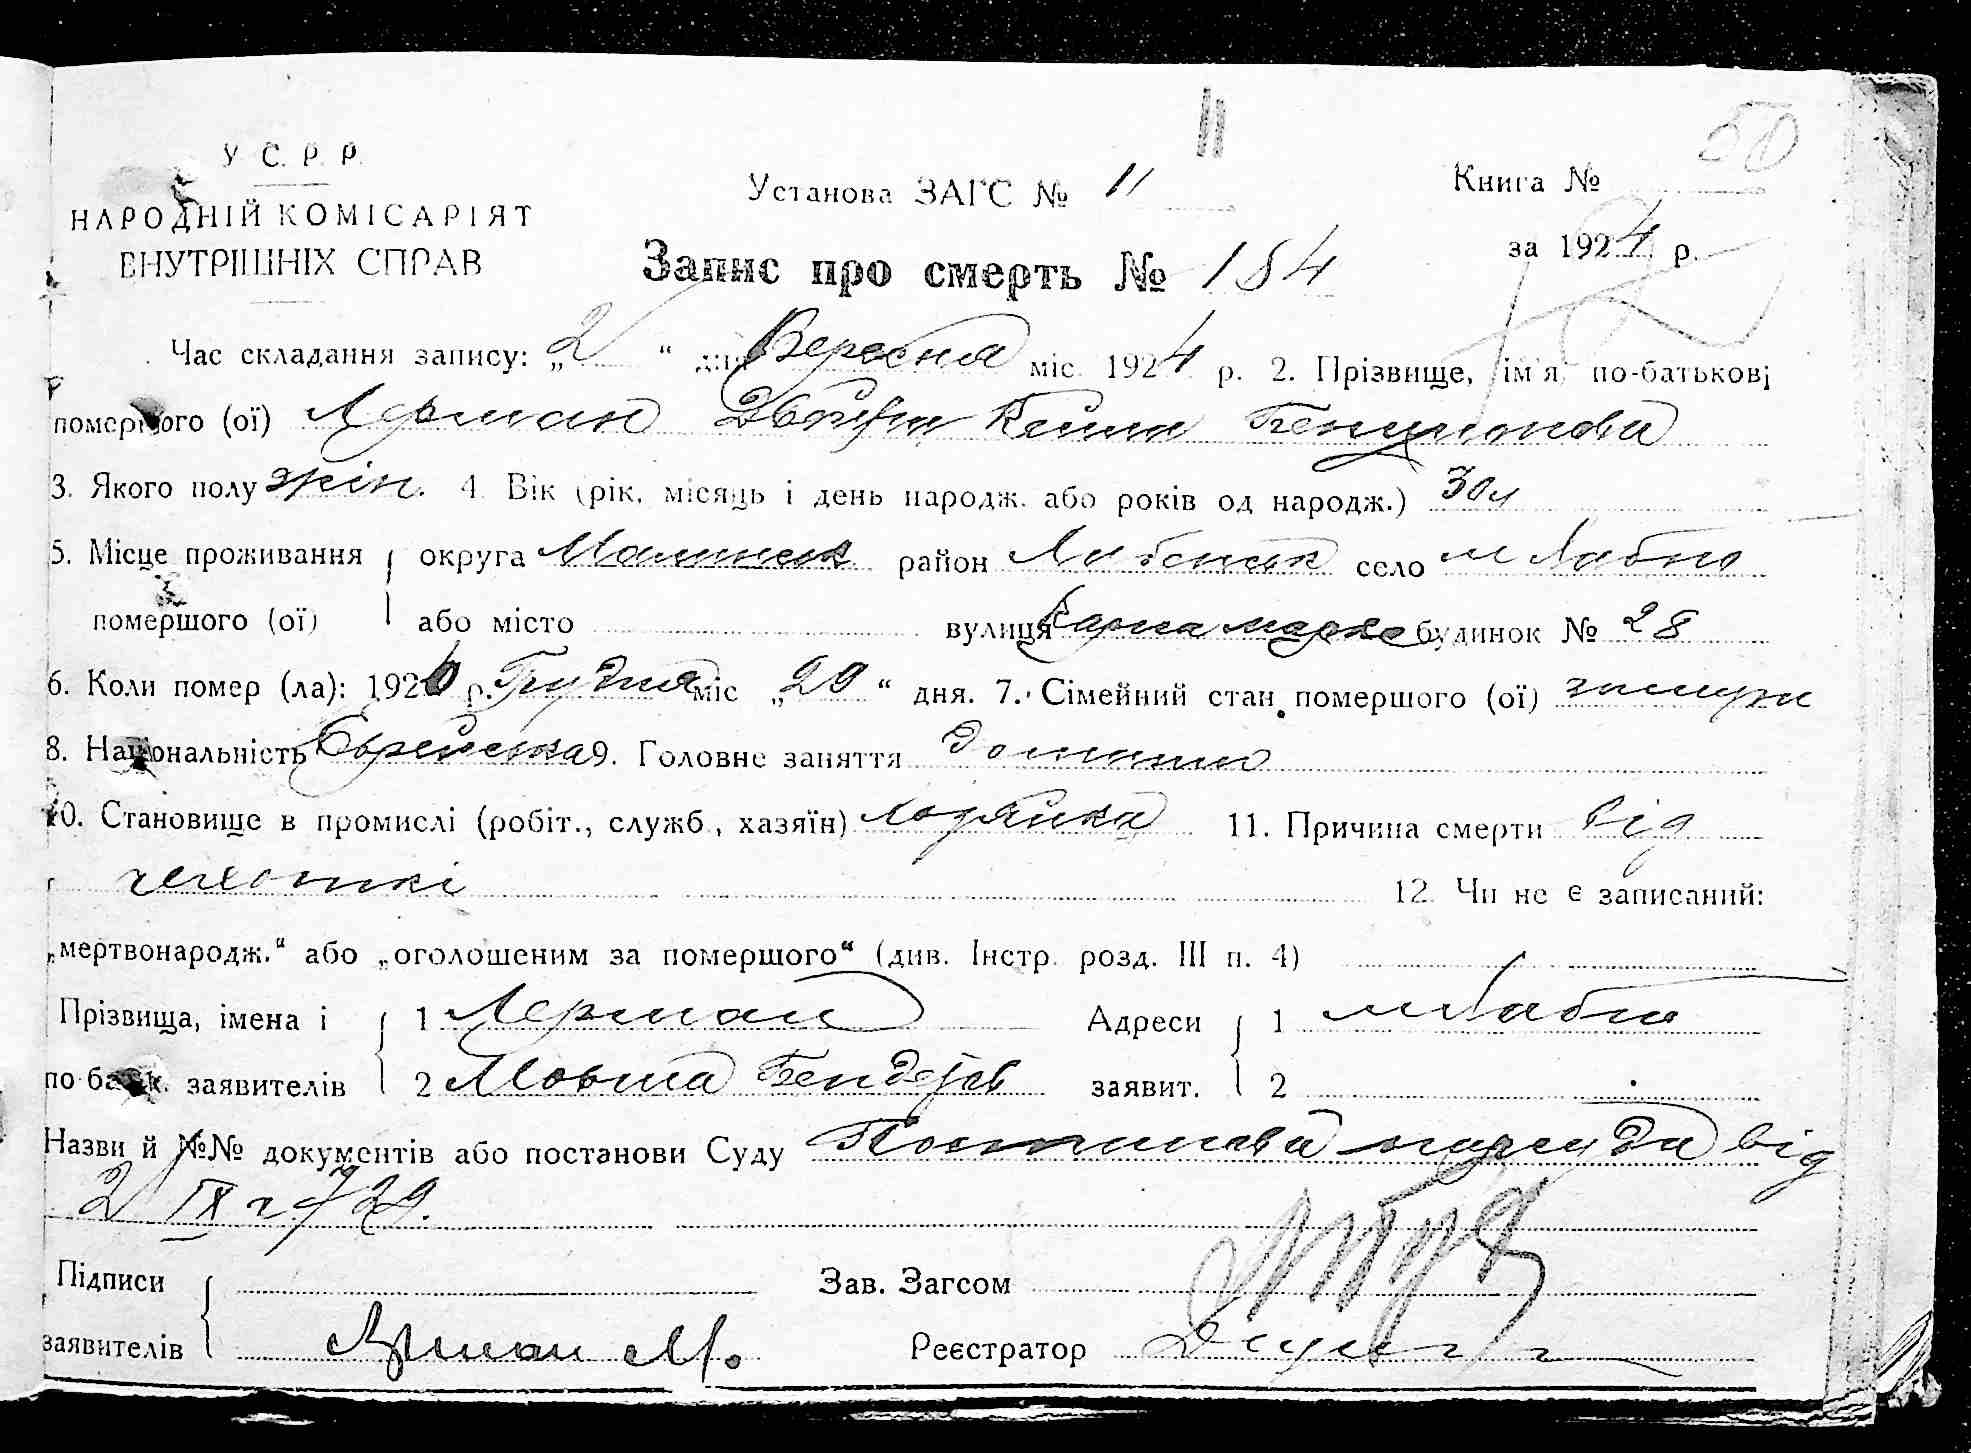 11
50
У С. Р. Р.
НАРОДНІЙ КОМІСАРІЯТ
ВНУТРІШНІХ СПРАВ
Установа ЗАГС № 11
Книга №
за 1924 р.
Запис про смерть № 184
Час складання запису: „2 “ дня Вересня міс. 1924 р. 2. Прізвище, ім'я, по-батькові
помершого (ої) Лерман Двойра Кейла
3. Якого полу жін. 4. Вік (рік, місяць і день народж. або років од народж.) 30 л
5. Місце проживання округа район село м
помершого (ої) або місто вулиця Карла маркса будинок № 28
6. Коли помер (ла): 1920 р. Грудня міс „20 “ дня. 7. Сімейний стан помершого (ої)
8. Національність Єврейська 9. Головне заняття
10. Становище в промислі (робіт., служб., хазяїн) 11. Причина смерти від
чехоткі 12. Чи не є записаний:
„мертвонародж.“ або „оголошеним за помершого“ (див. Інстр. розд. III п. 4)
Прізвища, імена і 1 Лерман Адреси 1
по-батьк. заявителів 2 Мовша заявит. 2
Назви й №№ документів або постанови Суду Постанова нарсуда від
2 IX
Підписи Зав. Загсом
заявителів Лерман М. Реєстратор